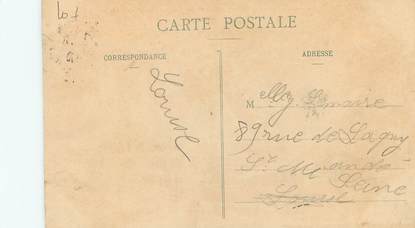 CARTE POSTALE
CORRESPONDANCE
ADRESSE
Louise
M elle Lemaire
89 rue de Lagny
St Mandé
Seine